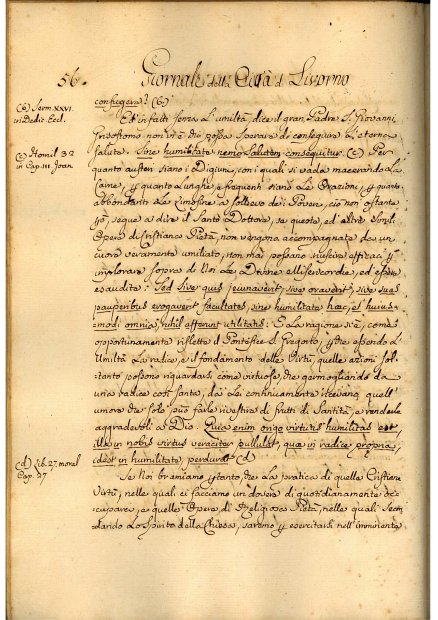 56. Giornale della Città di Livorno
(b) Serm. XXVI.
in Dedic. Eccl.
conseguera? (b)
Ed in fatti senza L'umiltà, dice il gran Padre S. Giovanni
Grisostomo non v'è che possa sperare di conseguire L'eterna
salute. Sine humilitate nemo salutem consequitur. (c) Per
(c) Homil. 32
in Cap. III. Joan.
quanto austeri siano i Digiuni, con i quali si vada macerando La
Carne, e quanto Lunghe, e frequenti siano Le Orazioni, e quanto
abbondanti Le Limosine a sollievo de' Poveri, ciò non ostante
seque a dire il Santo Dottore, se queste, ed altre simili
Opere di Cristiana Pietà, non vengono accompagnate da un
cuore veramente umiliato, non mai possono riuscire efficaci
implorare sopra di Noi Le Divine Misericordie, ed essere
esaudita: Sed sive quis jeunaverit, sive oraverit, sive suas
pauperibus erogaverit facultates, sine humilitate haec, et hujus-
modi omnia, nihil afferunt utilitatis: E La ragione si è, come
opportunamente riflette il Pontefice S. Gregorio, che essendo L'
Umiltà La radice, e il fondamento delle Virtù, quelle azioni sol-
tanto possono riguardarsi come virtuose, che germogliando da
una radice così santa, da La continuamente ricevano quell'
umore che solo può farle rivestire di frutti di Santità, e renderle
aggradevoli a Dio. Quia enim origo virtutis humilitas est
illa in nobis virtus veraciter pullulat, quae in radice propria,
idest in humilitate, perdurat (d)
(d) Lib. 27. moral
Cap. 27
Se Noi bramiamo che La pratica di quelle Cristiane
Virtù, nelle quali ci facciamo un dovere di quotidianamente oc-
cuparci, e quelle Opere di Religiosa Pietà, nelle quali secon-
dando Lo spirito della Chiesa, saremo per esercitarci nell'imminente